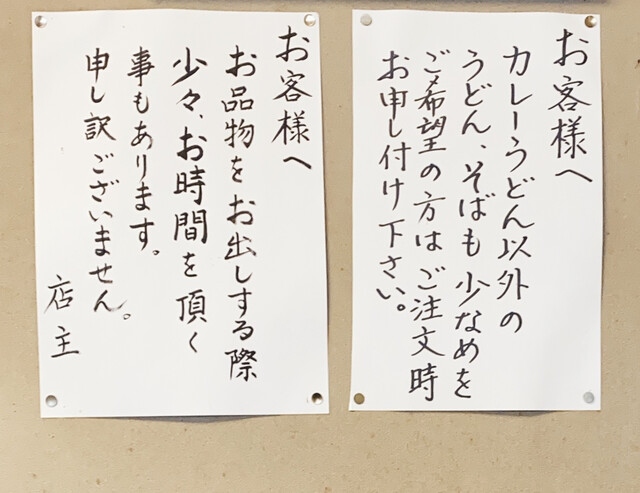 お客様へ
カレーうどん以外の
うどん、そばも少なめを
ご希望の方はご注文時
お申し付け下さい。
お客様へ
お品物をお出しする際
少々、お時間を頂く
事もあります。
申し訳ございません。
店主